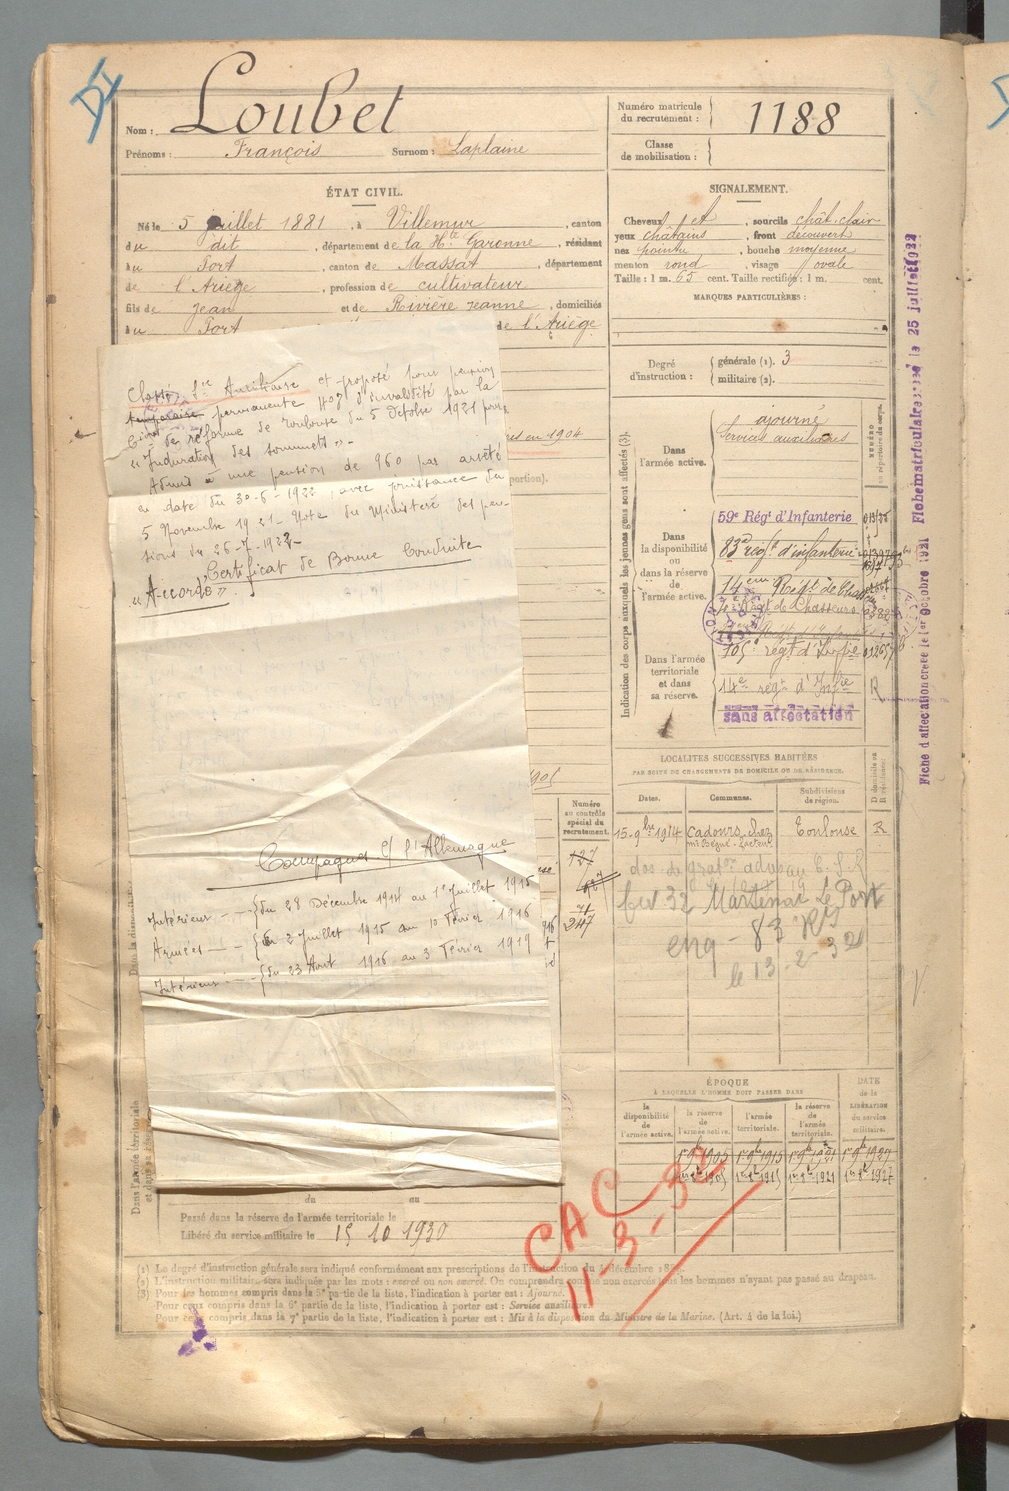 Nom : Loubet
Prénoms : François Surnom : Laplaine
Numéro matricule
du recrutement : 1188
Classe
de mobilisation :
ÉTAT CIVIL.
Né le 5 juillet 1881, à Villemur, canton
du dit, département de la Hte Garonne, résidant
à u Port, canton de Massat, département
de l'Ariège, profession de cultivateur
fils de Jean et de Rivière Jeanne, domiciliés
à u Port de l'Ariège
SIGNALEMENT.
Cheveux et, sourcils chât. clair
yeux châtains, front découvert
nez pointu, bouche moyenne
menton rond, visage ovale
Taille : 1 m. 65 cent. Taille rectifiée : 1 m. cent.
MARQUES PARTICULIÈRES :
Degré
d'instruction :
générale (1). 3
militaire (2).
Classé Sce Auxiliaire et proposé pour pension
temporaire permanente d'invalidité par la
de réforme de Toulouse du 5 Octobre 1921 pour
« Induration des sommets » -
Admis à une pension de 960 par arrêté
en date du 30-6-1922, avec jouissance du
5 Novembre 1921 - Note du Ministère des pen-
sions du 26-7-1922 -
Certificat de Bonne Conduite
« Accordé ».
Campagnes C/ l'Allemagne
Intérieur - du 28 Décembre 1914 au 1er Juillet 1915
Armées - 2 Juillet 1915 au 10 Février 1916
Intérieur - du 23 Août 1916 au 3 Février 1919
en 1904
Indication des corps auxquels les jeunes gens sont affectés (3).
Dans
l'armée active.
ajourné
Services auxiliaires
NUMÉRO
au répertoire du corps.
Dans
la disponibilité
ou
dans la réserve
de
l'armée active.
59e Régt d'Infanterie
83e régt d'infanterie
14em Régt de
Régt de Chasseurs
Dans l'armée
territoriale
et dans
sa réserve.
105e régt d'Infie
14e régt d'Infie R
sans affectation
Fiche d'affectation créée le 1er Octobre 1921 Fiche matriculaire le 25 juillet 1922
LOCALITÉS SUCCESSIVES HABITÉES
PAR SUITE DE CHANGEMENTS DE DOMICILE OU DE RÉSIDENCE.
Dates. Communes. Subdivisions
de région. D domicile ou
R résidence.
15-9bre 1914 Cadours, chez Toulouse R
Numéro
au contrôle
spécial du
recrutement.
127
71
247
32 Le Port
83
le 13-2-32
ÉPOQUE
À LAQUELLE L'HOMME DOIT PASSER DANS
DATE
de la
LIBÉRATION
du service
militaire.
la
disponibilité
de
l'armée active.
la réserve
de
l'armée active.
l'armée
territoriale.
la réserve
de
l'armée
territoriale.
1er 9bre 1905 1er 9bre 1915 1er 9bre 1921 1er 9bre 1927
1905 1915 1921 1927
Dans l'armée territoriale
et dans sa réserve
du au
Passé dans la réserve de l'armée territoriale le
Libéré du service militaire le 15 10 1930
CAC
11-3-32
(1) Le degré d'instruction générale sera indiqué conformément aux prescriptions de l'instruction du 4 décembre
(2) L'instruction militaire sera indiquée par les mots : exercé ou non exercé. On comprendra comme non exercés tous les hommes n'ayant pas passé au drapeau.
(3) Pour des hommes compris dans la 5e partie de la liste, l'indication à porter est : Ajourné.
Pour ceux compris dans la 6e partie de la liste, l'indication à porter est : Service auxiliaire.
Pour ceux compris dans la 7e partie de la liste, l'indication à porter est : Mis à la disposition du Ministre de la Marine. (Art. 4 de la loi.)